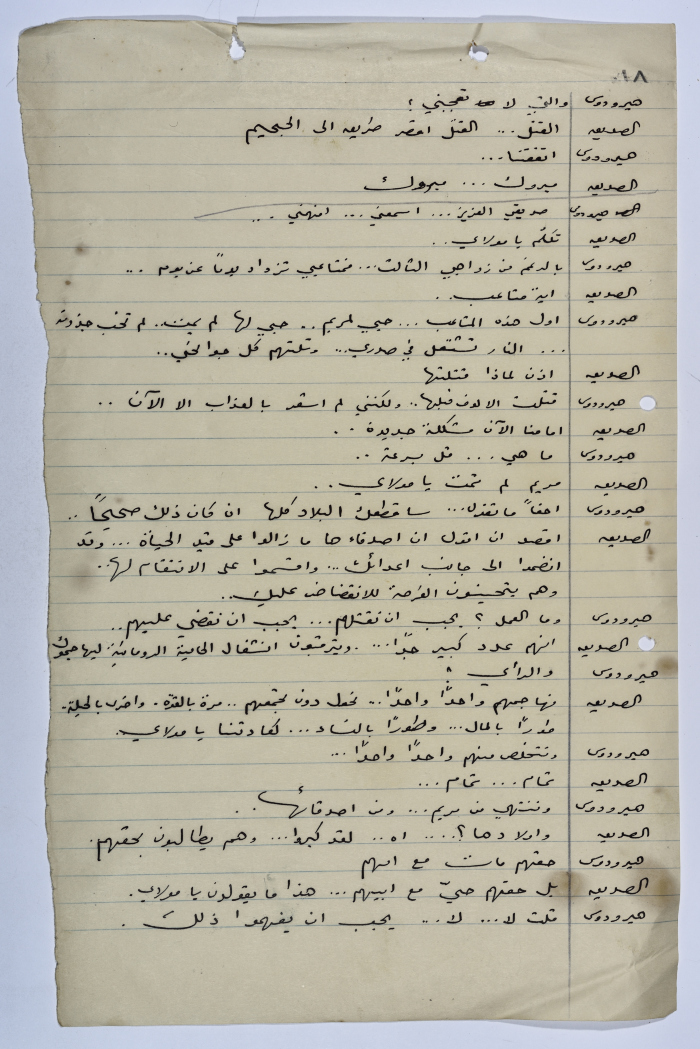 ١٨
هيرودوس والتي لا تعجبني ؟
الصديق القتل ... القتل اقصر طريق الى الجحيم
هيرودوس اتفقنا ...
الصديق مبروك ... مبروك
هيرودوس صديقي العزيز ... اسمعني ... افهمني ...
الصديق تكلم يا مولاي ..
هيرودوس بالرغم من زواجي الثالث ... فمتاعبي تزداد يوماً عن يوم ...
الصديق اية متاعب ..
هيرودوس اول هذه المتاعب ... حبي لمريم .. حبي لها لم يمت .. لم تخب جذوته
... النار تشتعل في صدري ... وتلتهم كل جوانحي ..
الصديق اذن لماذا قتلتها
هيرودوس قتلت الالوف قبلها .. ولكنني لم اشعر بالعذاب الا الآن ..
الصديق امامنا الآن مشكلة جديدة ..
هيرودوس ما هي ... قل بسرعة ..
الصديق مريم لم تمت يا مولاي ..
هيرودوس احقاً ما تقول ... ساقطعك البلاد كلها ان كان ذلك صحيحاً ..
الصديق اقصد ان اقول ان اصدقاءها ما زالوا على قيد الحياة ... وقد
انضموا الى جانب اعدائك ... واقسموا على الانتقام لها ..
وهم يتحينون الفرصة للانقضاض عليك ..
هيرودوس وما العمل ؟ يجب ان نقتلهم ... يجب ان نقضي عليهم ..
الصديق انهم عدد كبير جداً ... ويترقبون انشغال الحامية الرومانية ليهاجموك
هيرودوس والرأي ؟
الصديق نهاجمهم واحداً واحداً .. نحول دون تجمعهم .. مرة بالقوة . واخرى بالحيلة .
طوراً بالمال ... وطوراً بالنساء ... كعادتنا يا مولاي .
هيرودوس ونتخلص منهم واحداً واحداً ...
الصديق تمام ... تمام ...
هيرودوس وننتهي من مريم ... ومن اصدقائها ..
الصديق واولادها ؟ .... اه .. لقد كبروا ... وهم يطالبون بحقهم .
هيرودوس حقهم مات مع امهم
الصديق بل حقهم حيّ مع ابيهم ... هذا ما يقولون يا مولاي .
هيرودوس قلت لا ... لا ... يجب ان يفهموا ذلك .